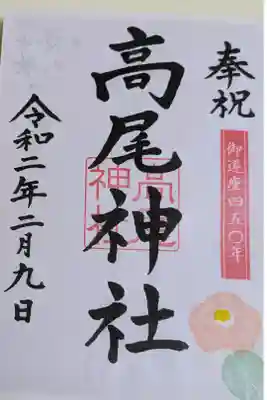 奉祝
御遷座四五〇年
高尾神社
高尾神社
令和二年二月九日